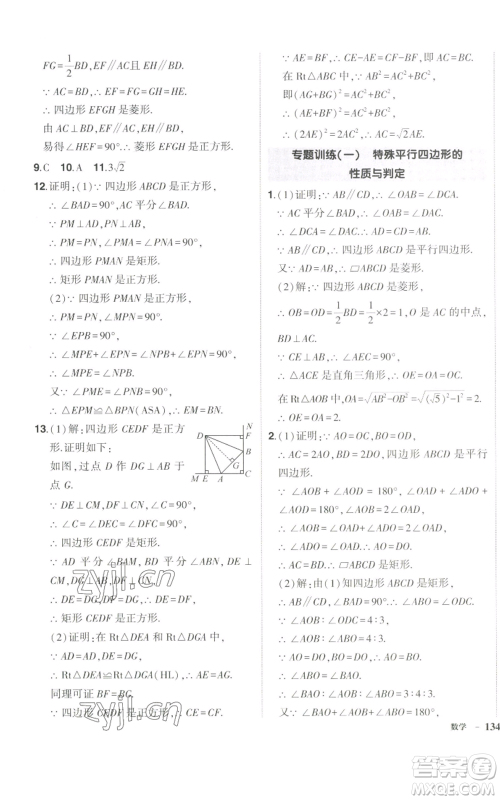 FG=1/2BD, EF∥AC且EH∥BD.
∵ AC=BD, ∴ EF=FG=GH=EH.
∴ 四边形 EFGH 是菱形.
∵ AC⊥BD, ∴ EF⊥EH.
∴ ∠HEF=90°. ∴ 菱形 EFGH 是正方形.
9.C 10.A 11.3√2
12.证明:(1)∵ 四边形 ABCD 是正方形,
∴ ∠BAD=90°, AC平分∠BAD.
∵ PM⊥AD, PN⊥AB,
∴ PM=PN, ∠PMA=∠PNA=90°.
∴ 四边形 PMAN 是矩形.
∴ 矩形 PMAN 是正方形.
(2)∵ 四边形 PMAN 是正方形,
∴ PM=PN, ∠MPN=90°.
∵ ∠EPB=90°,
∴ ∠MPE+∠EPN=∠NPB+∠EPN=90°.
∴ ∠MPE=∠NPB.
又∵ ∠PME=∠PNB=90°,
∴ △EPM≌△BPN(ASA). ∴ EM=BN.
13.(1)解:四边形 CEDF 是正方
形. 证明如下:
如图,过点 D 作 DG⊥AB 于
点 G.
N
D
F
B
G
M
E
A
C
∵ DE⊥CE, DF⊥CF,
∴ ∠DEC=∠DFC=90°.
又∵ ∠C=90°,
∴ 四边形 CEDF 是矩形.
∵ AD 平分∠BAM, DE⊥CM,
DG⊥AB,
∴ DE=DG. 同理可证 DF=DG.
∴ DE=DF. ∴ 四边形 CEDF 是正方形.
(2)证明:在 Rt△DEA 和 Rt△DGA 中,
∵ AD=AD, DE=DG,
∴ Rt△DEA≌Rt△DGA(HL). ∴ AE=AG.
同理可证 BF=BG.
∵ 四边形 CEDF 是正方形, ∴ CE=CF.
∵ AE=BF, ∴ CE-AE=CF-BF,
即 CA=CB.
∵ 在 Rt△ABC 中, AB²=AC²+BC²,
即(AG+BG)²=AC²+BC²,
∴ (AE+BF)²=AC²+BC².
∴ (2AE)²=AC²+AC². ∴ AC=√2AE.
专题训练(一) 特殊平行四边形的
性质与判定
1.(1)证明:∵ AB∥CD, ∴ ∠OAB=∠DCA.
∵ AC 平分∠BAD, ∴ ∠OAB=∠DAC.
∴ ∠DCA=∠DAC. ∴ CD=AD=AB.
∵ AB∥CD, ∴ 四边形 ABCD 是平行四边形.
又∵ AD=AB, ∴ ▱ABCD 是菱形.
(2)解:∵ 四边形 ABCD 是菱形,
∴ OB=OD=1/2BD=1/2×2=1, O 是 AC 的中点,
BD⊥AC.
∵ CE⊥AB,
∴ △ACE 是直角三角形. ∴ OE=OA=OC.
在 Rt△AOB 中, OA=√(AB²-OB²)=√((√5)²-1²)=2,
∴ OE=OA=2.
2.(1)证明:∵ AO=OC, BO=OD,
∴ 四边形 ABCD 是平行
四边形.
∵ ∠AOB+∠AOD=180°, ∠OAD+∠ADO+
∠AOD=180°, ∠AOB=2∠OAD,
∴ ∠AOB=∠OAD+∠ADO=2∠OAD.
∴ ∠OAD=∠ADO. ∴ AO=OD.
∴ AC=BD. ∴ 四边形 ABCD 是矩形.
(2)解:由(1)知四边形 ABCD 是矩形,
∴ ∠BAD=90°, AO=BO. ∴ ∠ABO=∠OAB.
∵ ∠AOB:∠OAD=4:3,
∴ ∠AOB:∠ABO=4:3.
∴ ∠AOB:∠ABO=4:3.
数学 - 134
zyjl.cn
zyjl.cn
答案圈
MXQE.COM